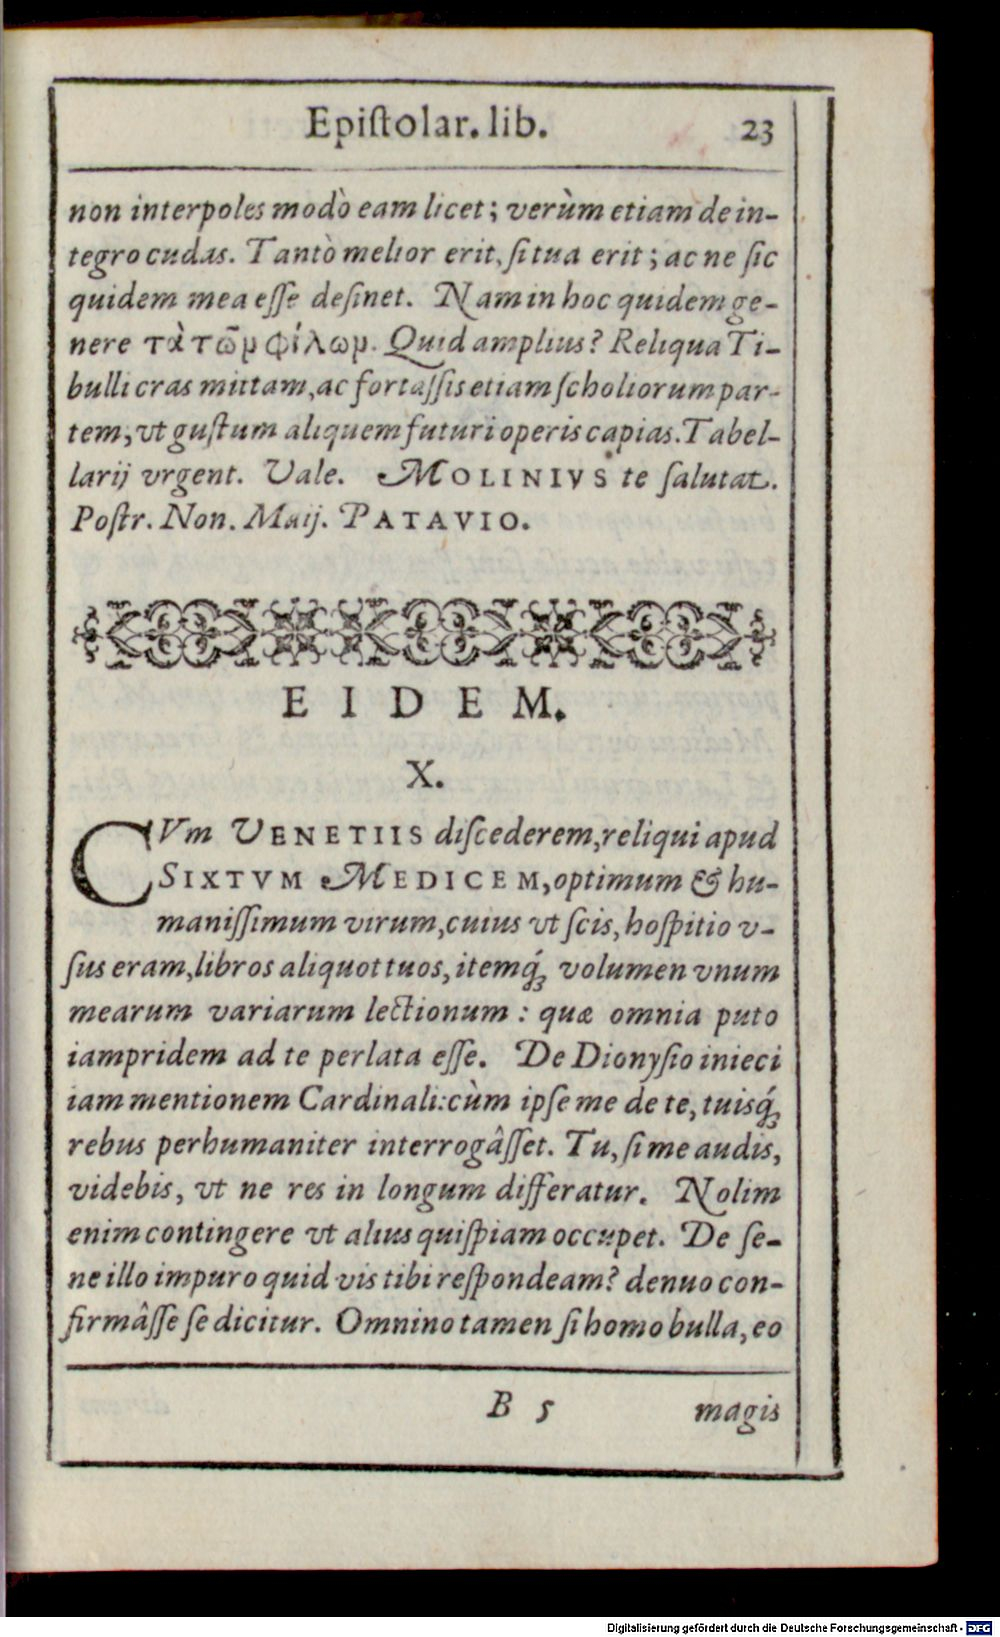 Epiſtolar. lib. 23
non interpoles modò eam licet; verùm etiam de in-
tegro cudas. Tantò melior erit, ſi tua erit; ac ne ſic
quidem mea eſſe deſinet. Nam in hoc quidem ge-
nere τὰ τῶμ φίλωμ. Quid amplius? Reliqua Ti-
bulli cras mittam, ac fortaſſis etiam ſcholiorum par-
tem, vt guſtum aliquem futuri operis capias. Tabel-
larij vrgent. Vale. MOLINIVS te ſalutat.
Poſtr. Non. Maij. PATAVIO.
EIDEM.
X.
CVm VENETIIS diſcederem, reliqui apud
SIXTVM MEDICEM, optimum & hu-
maniſſimum virum, cuius vt ſcis, hoſpitio v-
ſus eram, libros aliquot tuos, itemq́; volumen vnum
mearum variarum lectionum: quæ omnia puto
iampridem ad te perlata eſſe. De Dionyſio inieci
iam mentionem Cardinali: cùm ipſe me de te, tuisq́;
rebus perhumaniter interrogâſſet. Tu, ſi me audis,
videbis, vt ne res in longum differatur. Nolim
enim contingere vt alius quiſpiam occupet. De ſe-
ne illo impuro quid vis tibi reſpondeam? denuo con-
firmâſſe ſe dicitur. Omnino tamen ſi homo bulla, eo
B 5 magis
Digitalisierung gefördert durch die Deutsche Forschungsgemeinschaft - DFG